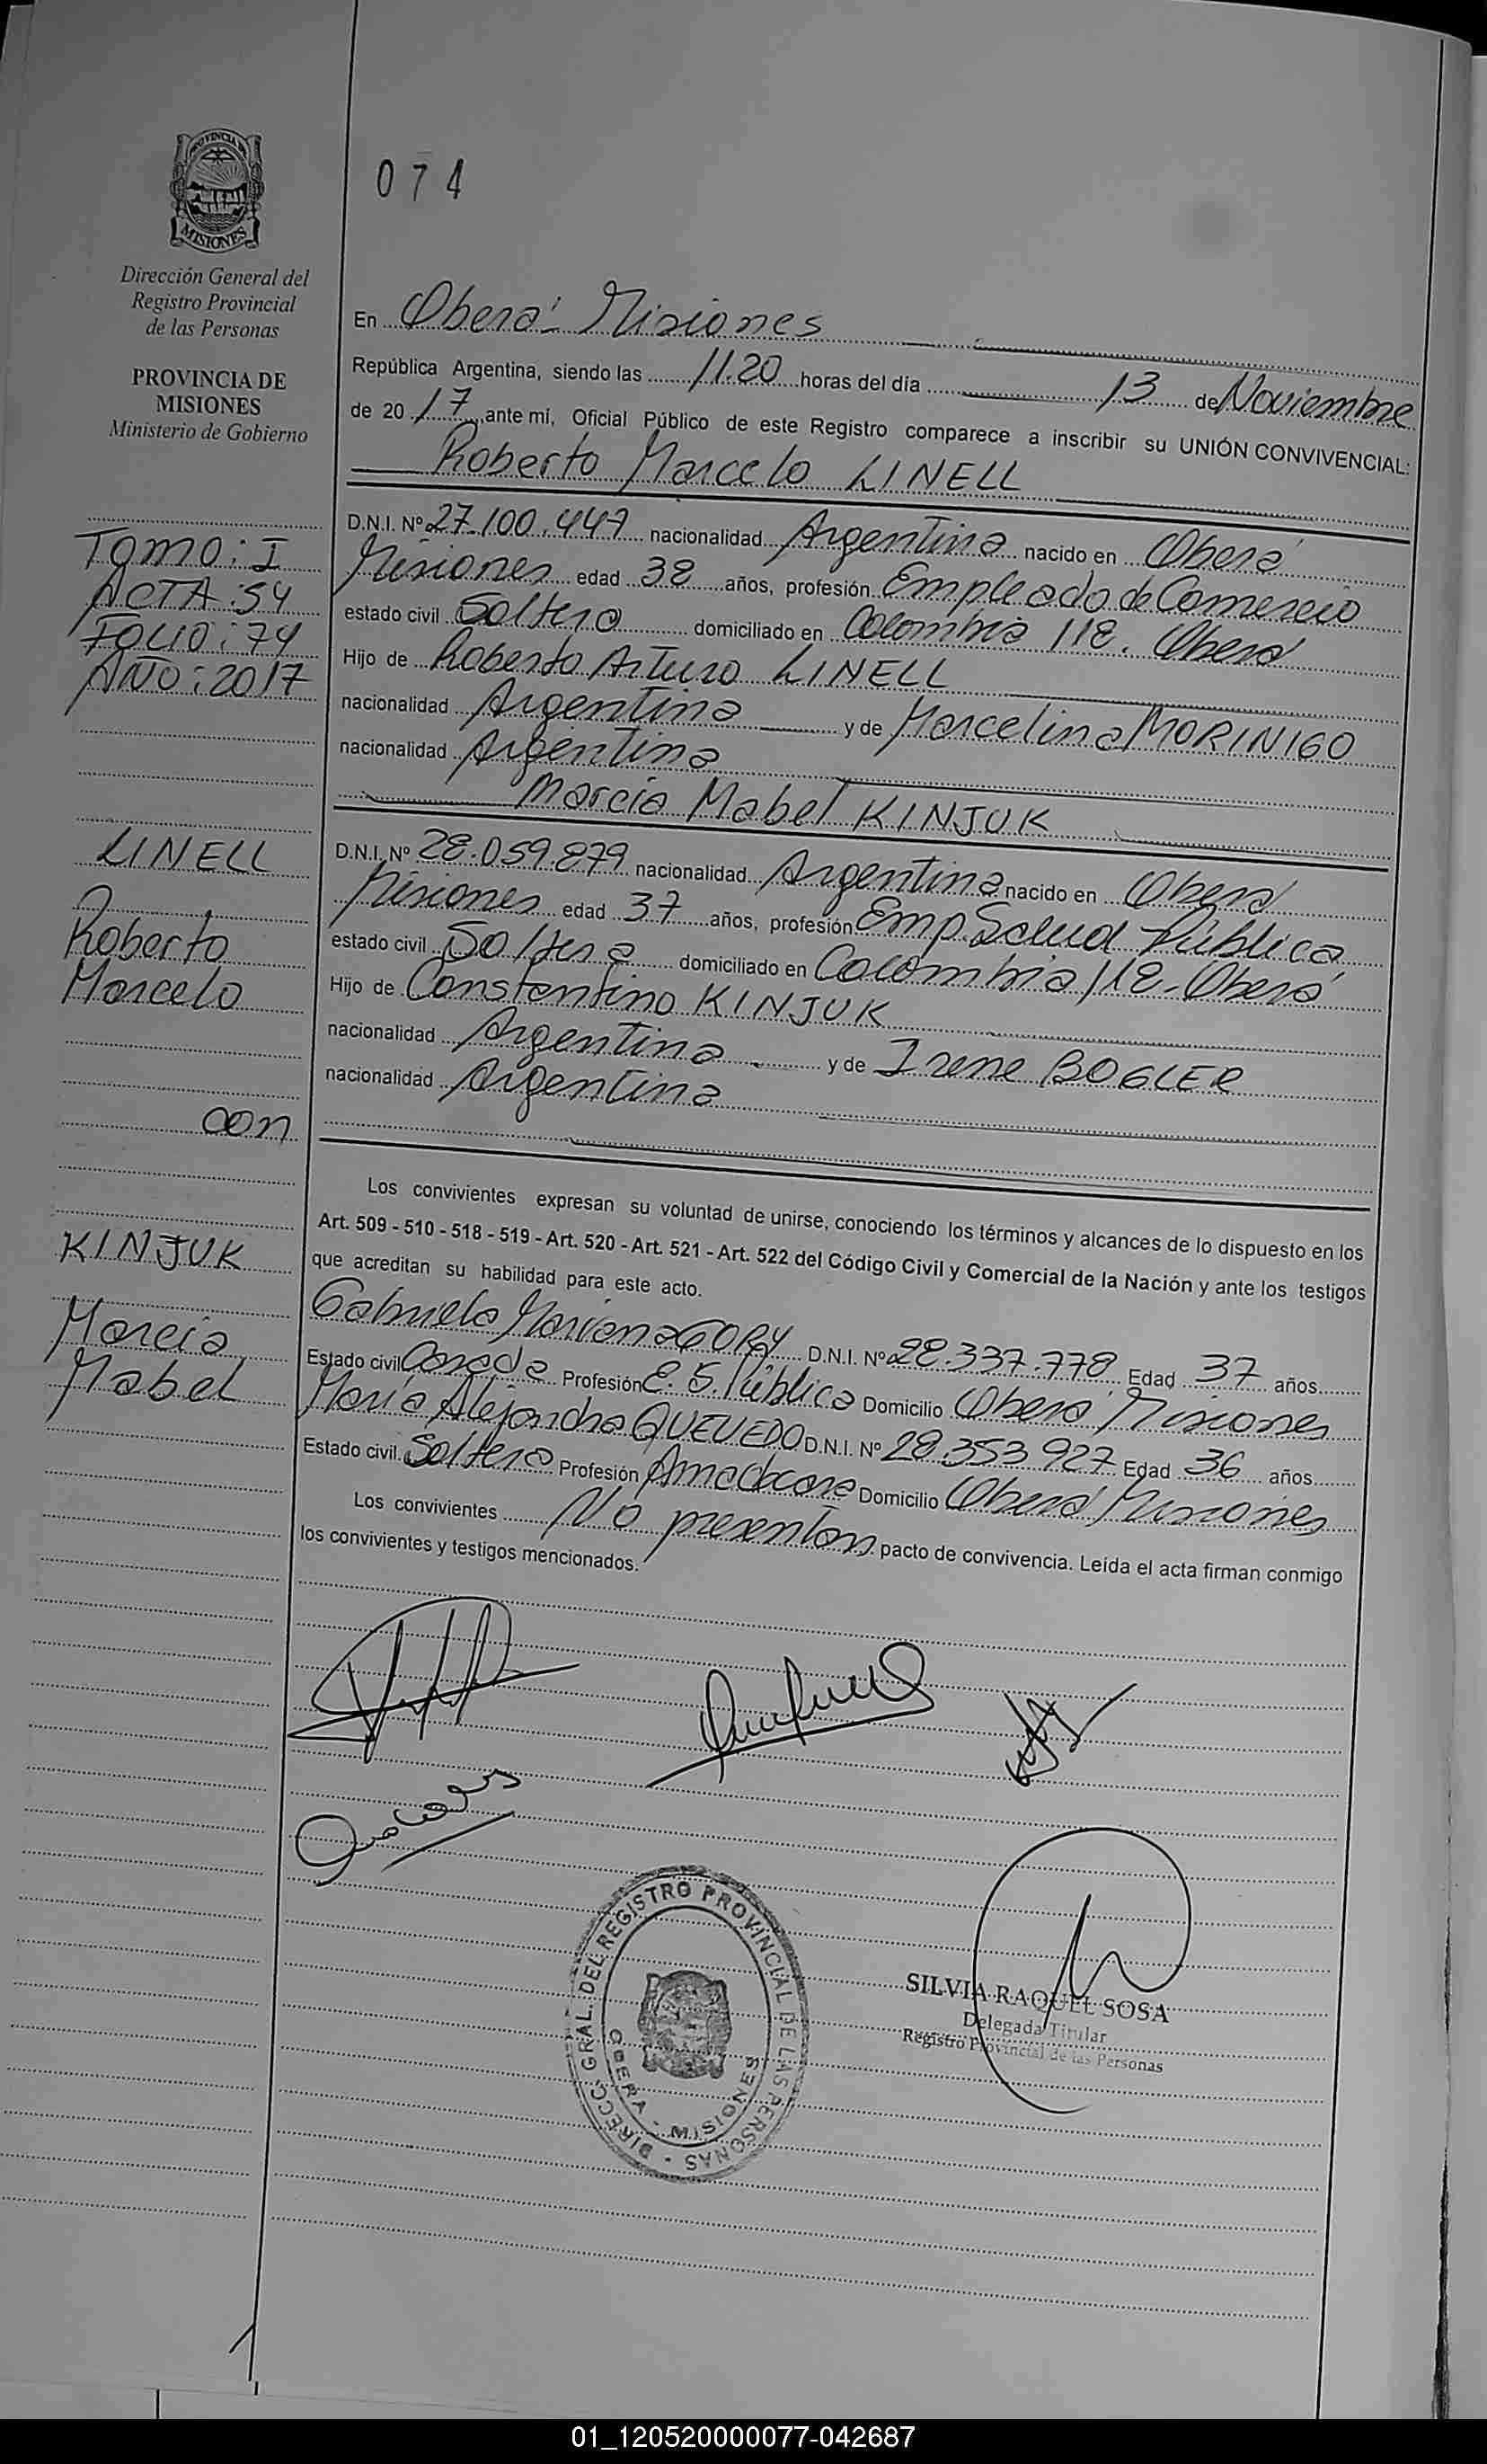 PROVINCIA DE
MISIONES
Dirección General del
Registro Provincial
de las Personas
PROVINCIA DE
MISIONES
Ministerio de Gobierno
Tomo: I
ACTA: 54
FOLIO: 74
AÑO: 2017
LINELL
Roberto
Marcelo
con
KINJUK
Marcia
Mabel
074
En Oberá - Misiones
República Argentina, siendo las 11.20 horas del día 13 de Noviembre
de 2017, ante mi, Oficial Público de este Registro comparece a inscribir su UNIÓN CONVIVENCIAL:
Roberto Marcelo LINELL
D.N.I. Nº 27.100.447 nacionalidad Argentina nacido en Oberá
Misiones edad 38 años, profesión Empleado de Comercio
estado civil Soltero domiciliado en Colombia 118. Oberá
Hijo de Roberto Arturo LINELL
nacionalidad Argentina y de Marcelina MORINIGO
nacionalidad Argentina
Marcia Mabel KINJUK
D.N.I. Nº 28.059.879 nacionalidad Argentina nacido en Oberá
Misiones edad 37 años, profesión Emp. Salud Pública
estado civil Soltera domiciliado en Colombia 118 - Oberá
Hijo de Constantino KINJUK
nacionalidad Argentina y de Irene BOGLER
nacionalidad Argentina
Los convivientes expresan su voluntad de unirse, conociendo los términos y alcances de lo dispuesto en los
Art. 509 - 510 - 518 - 519 - Art. 520 - Art. 521 - Art. 522 del Código Civil y Comercial de la Nación y ante los testigos
que acreditan su habilidad para este acto.
Gabriela Mariana GORY D.N.I. Nº 28.337.778 Edad 37 años
Estado civil Casada Profesión E. S. Pública Domicilio Oberá Misiones
María Alejandra QUEVEDO D.N.I. Nº 28.353 927 Edad 36 años
Estado civil Soltera Profesión Ama de casa Domicilio Oberá Misiones
Los convivientes No presentan pacto de convivencia. Leída el acta firman conmigo
los convivientes y testigos mencionados.
DIRECC. GRAL. DEL REGISTRO PROVINCIAL DE LAS PERSONAS
OBERA - MISIONES
SILVIA RAQUEL SOSA
Delegada Titular
Registro Provincial de las Personas
01_120520000077-042687